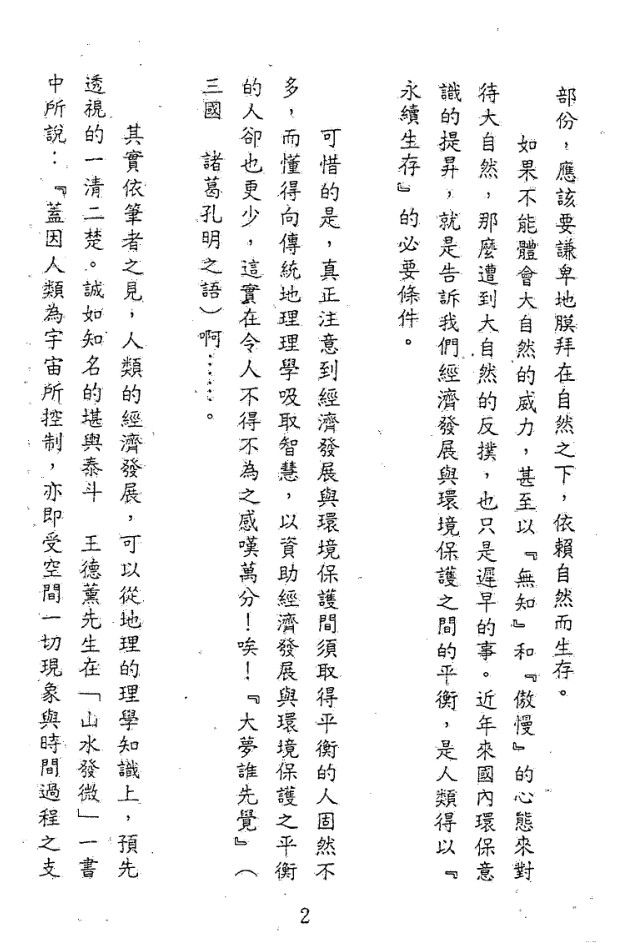 部份，應該要謙卑地膜拜在自然之下，依賴自然而生存。
如果不能體會大自然的威力，甚至以『無知』和『傲慢』的心態來對
待大自然，那麼遭到大自然的反撲，也只是遲早的事。近年來國內環保意
識的提昇，就是告訴我們經濟發展與環境保護之間的平衡，是人類得以『
永續生存』的必要條件。
可惜的是，真正注意到經濟發展與環境保護間須取得平衡的人固然不
多，而懂得向傳統地理理學吸取智慧，以資助經濟發展與環境保護之平衡
的人卻也更少，這實在令人不得不為之感嘆萬分！唉！『大夢誰先覺』（
三國　諸葛孔明之語）啊……。
其實依筆者之見，人類的經濟發展，可以從地理的理學知識上，預先
透視的一清二楚。誠如知名的堪輿泰斗　王德薰先生在「山水發微」一書
中所說：『蓋因人類為宇宙所控制，亦即受空間一切現象與時間過程之支
2